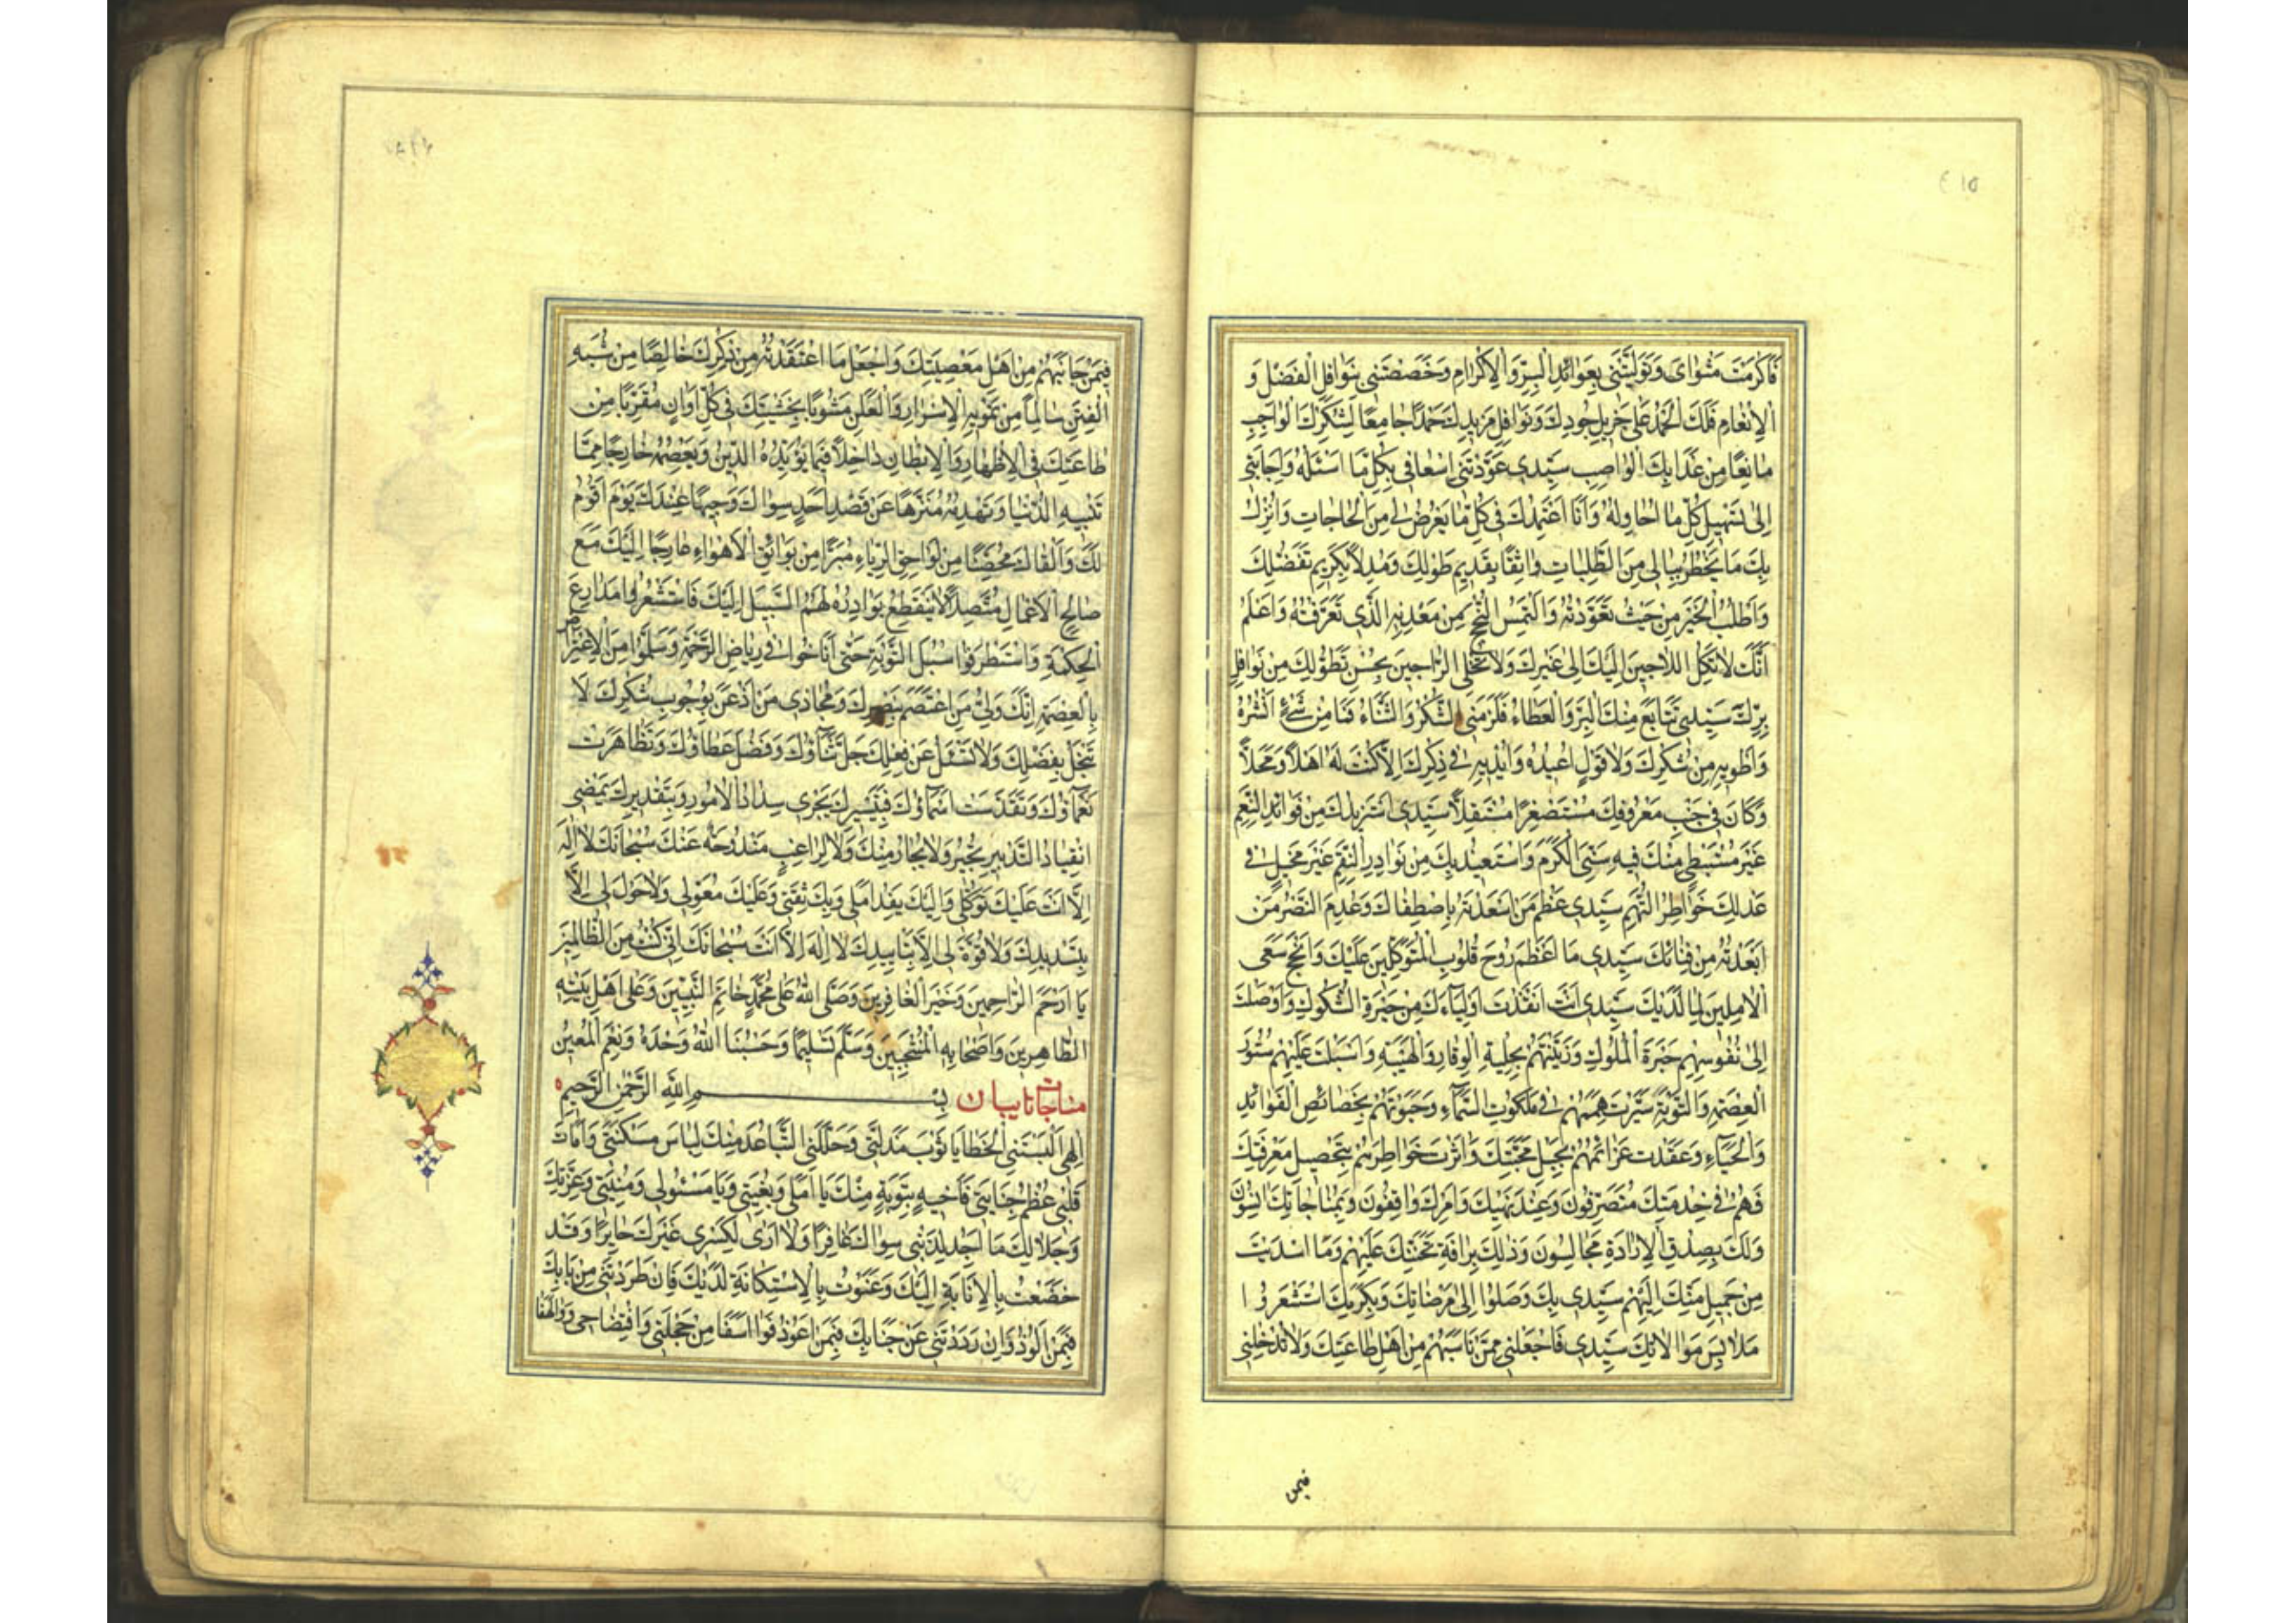 ٤١٥
فَاَكْرَمْتَ مَثْوٰايَ وَتَوَلَّيْتَنى بِعَوٰائِدِ الْبِرِّ وَالْاِكْرٰامِ وَخَصَصْتَنى بِنَوٰافِلِ الْفَضْلِ وَ
الْاِنْعٰامِ فَلَكَ الْحَمْدُ عَلٰى جَزيلِ جُودِكَ وَنَوٰافِلِ مَزيدِكَ حَمْدًا جٰامِعًا لِشُكْرِكَ الْوٰاجِبِ
مٰانِعًا مِنْ عَذٰابِكَ الْوٰاصِبِ سَيِّدى عَوَّدْتَنى اِسْعٰافى بِكُلِّ مٰا اَسْئَلُهُ وَاِجٰابَتى
اِلٰى تَسْهيلِ كُلِّ مٰا اُحٰاوِلُهُ وَاَنَا اَعْتَمِدُكَ فى كُلِّ مٰا يَعْرِضُ لى مِنَ الْحٰاجٰاتِ وَاُنْزِلُ
بِكَ مٰا يَخْطُرُ بِبٰالى مِنَ الطَّلِبٰاتِ وٰاثِقًا بِقَديمِ طَوْلِكَ وَمُدِلًّا بِكَريمِ تَفَضُّلِكَ
وَاَطْلُبُ الْخَيْرَ مِنْ حَيْثُ تَعَوَّدْتُهُ وَاَلْتَمِسُ النُّجْحَ مِنْ مَعْدِنِهِ الَّذى تَعَرَّفْتُهُ وَاَعْلَمُ
اَنَّكَ لٰا تَكِلُ اللّٰاجينَ اِلَيْكَ اِلٰى غَيْرِكَ وَلٰا تُخْلِى الرّٰاجينَ بِحُسْنِ تَطَوُّلِكَ مِنْ نَوٰافِلِ
بِرِّكَ سَيِّدى تَتٰابَعَ مِنْكَ الْبِرُّ وَالْعَطٰاءُ فَلَزِمَنِى الشُّكْرُ وَالثَّنٰاءُ فَمٰا مِنْ شَىْءٍ اَنْشُرُهُ
وَاَطْويهِ مِنْ شُكْرِكَ وَلٰا قَوْلٍ اُعيدُهُ وَاُبْديهِ فى ذِكْرِكَ اِلّٰا كُنْتَ لَهُ اَهْلًا وَمَحَلًّا
وَكٰانَ فى جَنْبِ مَعْرُوفِكَ مُسْتَصْغَرًا مُسْتَقِلًّا سَيِّدى اَسْتَزيدُكَ مِنْ فَوٰائِدِ النِّعَمِ
غَيْرَ مُسْتَبْطِئٍ مِنْكَ فيهِ سَنِىَّ الْكَرَمِ وَاَسْتَعيذُ بِكَ مِنْ بَوٰادِرِ النِّقَمِ غَيْرَ مُخَيِّلٍ فى
عَدْلِكَ خَوٰاطِرَ التُّهَمِ سَيِّدى عَظُمَ مَنْ اَسْعَدْتَهُ بِاصْطِفٰاكَ وَعَدِمَ النَّصْرَ مَنْ
اَبْعَدْتَهُ مِنْ فِنٰائِكَ سَيِّدى مٰا اَعْظَمَ رَوْحَ قُلُوبِ الْمُتَوَكِّلينَ عَلَيْكَ وَاَنْجَحَ سَعْىَ
الْاٰمِلينَ لِمٰا لَدَيْكَ سَيِّدى اَنْتَ اَنْقَذْتَ اَوْلِيٰاءَكَ مِنْ حَيْرَةِ الشُّكُوكِ وَاَوْصَلْتَ
اِلٰى نُفُوسِهِمْ حَبْرَةَ الْمُلُوكِ وَزَيَّنْتَهُمْ بِحِلْيَةِ الْوَقٰارِ وَالْهَيْبَةِ وَاَسْبَلْتَ عَلَيْهِمْ سُتُورَ
الْعِصْمَةِ وَالتَّوْبَةِ وَسَيَّرْتَ هِمَمَهُمْ فى مَلَكُوتِ السَّمٰاءِ وَحَبَوْتَهُمْ بِخَصٰائِصِ الْفَوٰائِدِ
وَالْحِبٰاءِ وَعَقَدْتَ عَزٰائِمَهُمْ بِحَبْلِ مَحَبَّتِكَ وَاٰثَرْتَ خَوٰاطِرَهُمْ بِتَحْصيلِ مَعْرِفَتِكَ
فَهُمْ فى خِدْمَتِكَ مُتَصَرِّفُونَ وَعِنْدَ نَهْيِكَ وَاَمْرِكَ وٰاقِفُونَ وَبِمُنٰاجٰاتِكَ اٰنِسُونَ
وَلَكَ بِصِدْقِ الْاِرٰادَةِ مُجٰالِسُونَ وَذٰلِكَ بِرَاْفَةِ تَحَنُّنِكَ عَلَيْهِمْ وَمٰا اَسْدَيْتَ
مِنْ جَميلِ مَنِّكَ اِلَيْهِمْ سَيِّدى بِكَ وَصَلُوا اِلٰى مَرْضٰاتِكَ وَبِكَرَمِكَ اسْتَشْعَرُوا
مَلٰابِسَ مُوٰالٰاتِكَ سَيِّدى فَاجْعَلْنى مِمَّنْ نٰاسَبَهُمْ مِنْ اَهْلِ طٰاعَتِكَ وَلٰا تُدْخِلْنى
فيمن
فيمَنْ جٰانَبَهُمْ مِنْ اَهْلِ مَعْصِيَتِكَ وَاجْعَلْ مَا اعْتَقَدْتُهُ مِنْ ذِكْرِكَ خٰالِصًا مِنْ شُبَهِ
الْفِتَنِ سٰالِمًا مِنْ تَمْويهِ الْاَسْرٰارِ وَالْعَلَنِ مَشُوبًا بِخَشْيَتِكَ فى كُلِّ اَوٰانٍ مُقَرِّبًا مِنْ
طٰاعَتِكَ فِى الْاِظْهٰارِ وَالْاِبْطٰانِ دٰاخِلًا فيمٰا يُؤَيِّدُهُ الدّينُ وَيَعْصِمُهُ خٰارِجًا مِمّٰا
تَبْنيهِ الدُّنْيٰا وَتَهْدِمُهُ مُنَزَّهًا عَنْ قَصْدِ اَحَدٍ سِوٰاكَ وَجيهًا عِنْدَكَ يَوْمَ اَقُومُ
لَكَ وَاَلْقٰاكَ مُحَصَّنًا مِنْ لَوٰاحِقِ الرِّيٰاءِ مُبَرَّءًا مِنْ بَوٰائِقِ الْاَهْوٰاءِ عٰارِجًا اِلَيْكَ مَعَ
صٰالِحِ الْاَعْمٰالِ مُتَّصِلًا لٰا يَنْقَطِعُ بَوٰادِرُهُ لَهُمُ السَّبيلَ اِلَيْكَ فَاسْتَشْعَرُوا مَدٰارِعَ
الْحِكْمَةِ وَاسْتَطْرَقُوا سُبُلَ التَّوْبَةِ حَتّٰى اَنٰاخُوا فى رِيٰاضِ الرَّحْمَةِ وَسَلِمُوا مِنَ الْاِعْتِرٰاضِ
بِالْعِصْمَةِ اِنَّكَ وَلِىُّ مَنِ اعْتَصَمَ بِنَصْرِكَ وَمُجٰازى مَنْ اَذْعَنَ بِوُجُوبِ شُكْرِكَ لٰا
تَبْخَلُ بِفَضْلِكَ وَلٰا تُسْئَلُ عَنْ فِعْلِكَ جَلَّ ثَنٰاؤُكَ وَفَضُلَ عَطٰاؤُكَ وَتَظٰاهَرَتْ
نَعْمٰاؤُكَ وَتَقَدَّسَتْ اَسْمٰاؤُكَ فَبِتَيْسيرِكَ يَجْرى سَدٰادُ الْاُمُورِ وَبِتَقْديرِكَ يَمْضِى
انْقِيٰادُ التَّدْبيرِ تُجيرُ وَلٰا يُجٰارُ مِنْكَ وَلٰا لِرٰاغِبٍ مَنْدُوحَةٌ عَنْكَ سُبْحٰانَكَ لٰا اِلٰهَ
اِلّٰا اَنْتَ عَلَيْكَ تَوَكُّلى وَاِلَيْكَ يَفِدُ اَمَلى وَبِكَ ثِقَتى وَعَلَيْكَ مُعَوَّلى وَلٰا حَوْلَ لى اِلّٰا
بِتَسْديدِكَ وَلٰا قُوَّةَ لى اِلّٰا بِتَاْييدِكَ لٰا اِلٰهَ اِلّٰا اَنْتَ سُبْحٰانَكَ اِنّى كُنْتُ مِنَ الظّٰالِمينَ
يٰا اَرْحَمَ الرّٰاحِمينَ وَخَيْرَ الْغٰافِرينَ وَصَلَّى اللّٰهُ عَلٰى مُحَمَّدٍ خٰاتَمِ النَّبِيّينَ وَعَلٰى اَهْلِ بَيْتِهِ
الطّٰاهِرينَ وَاَصْحٰابِهِ الْمُنْتَجَبينَ وَسَلَّمَ تَسْليمًا وَحَسْبُنَا اللّٰهُ وَحْدَهُ وَنِعْمَ الْمُعينُ
مناجات تايبان بِسْمِ اللّٰهِ الرَّحْمٰنِ الرَّحيمِ
اِلٰهى اَلْبَسَتْنِى الْخَطٰايٰا ثَوْبَ مَذَلَّتى وَجَلَّلَنِى التَّبٰاعُدُ مِنْكَ لِبٰاسَ مَسْكَنَتى وَاَمٰاتَ
قَلْبى عَظيمُ جِنٰايَتى فَاَحْيِهِ بِتَوْبَةٍ مِنْكَ يٰا اَمَلى وَبُغْيَتى وَيٰا سُؤْلى وَمُنْيَتى وَعِزَّتِكَ
وَجَلٰالِكَ مٰا اَجِدُ لِذَنْبى سِوٰاكَ غٰافِرًا وَلٰا اَرٰى لِكَسْرى غَيْرَكَ جٰابِرًا وَقَدْ
خَضَعْتُ بِالْاِنٰابَةِ اِلَيْكَ وَعَنَوْتُ بِالْاِسْتِكٰانَةِ لَدَيْكَ فَاِنْ طَرَدْتَنى مِنْ بٰابِكَ
فَبِمَنْ اَلُوذُ وَاِنْ رَدَدْتَنى عَنْ جَنٰابِكَ فَبِمَنْ اَعُوذُ فَوٰا اَسَفٰا مِنْ خَجْلَتى وَافْتِضٰاحى وَوٰالَهْفٰا